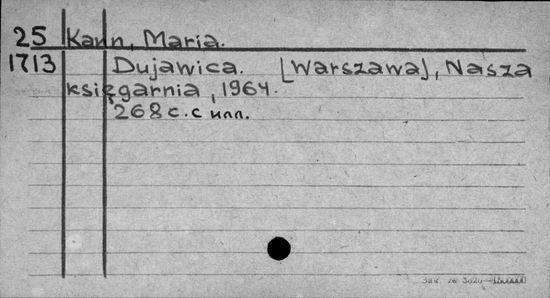 25 Kann, Maria.
1713 Dujawica. [Warszawa], Nasza
księgarnia, 1964.
268 c. с илл.